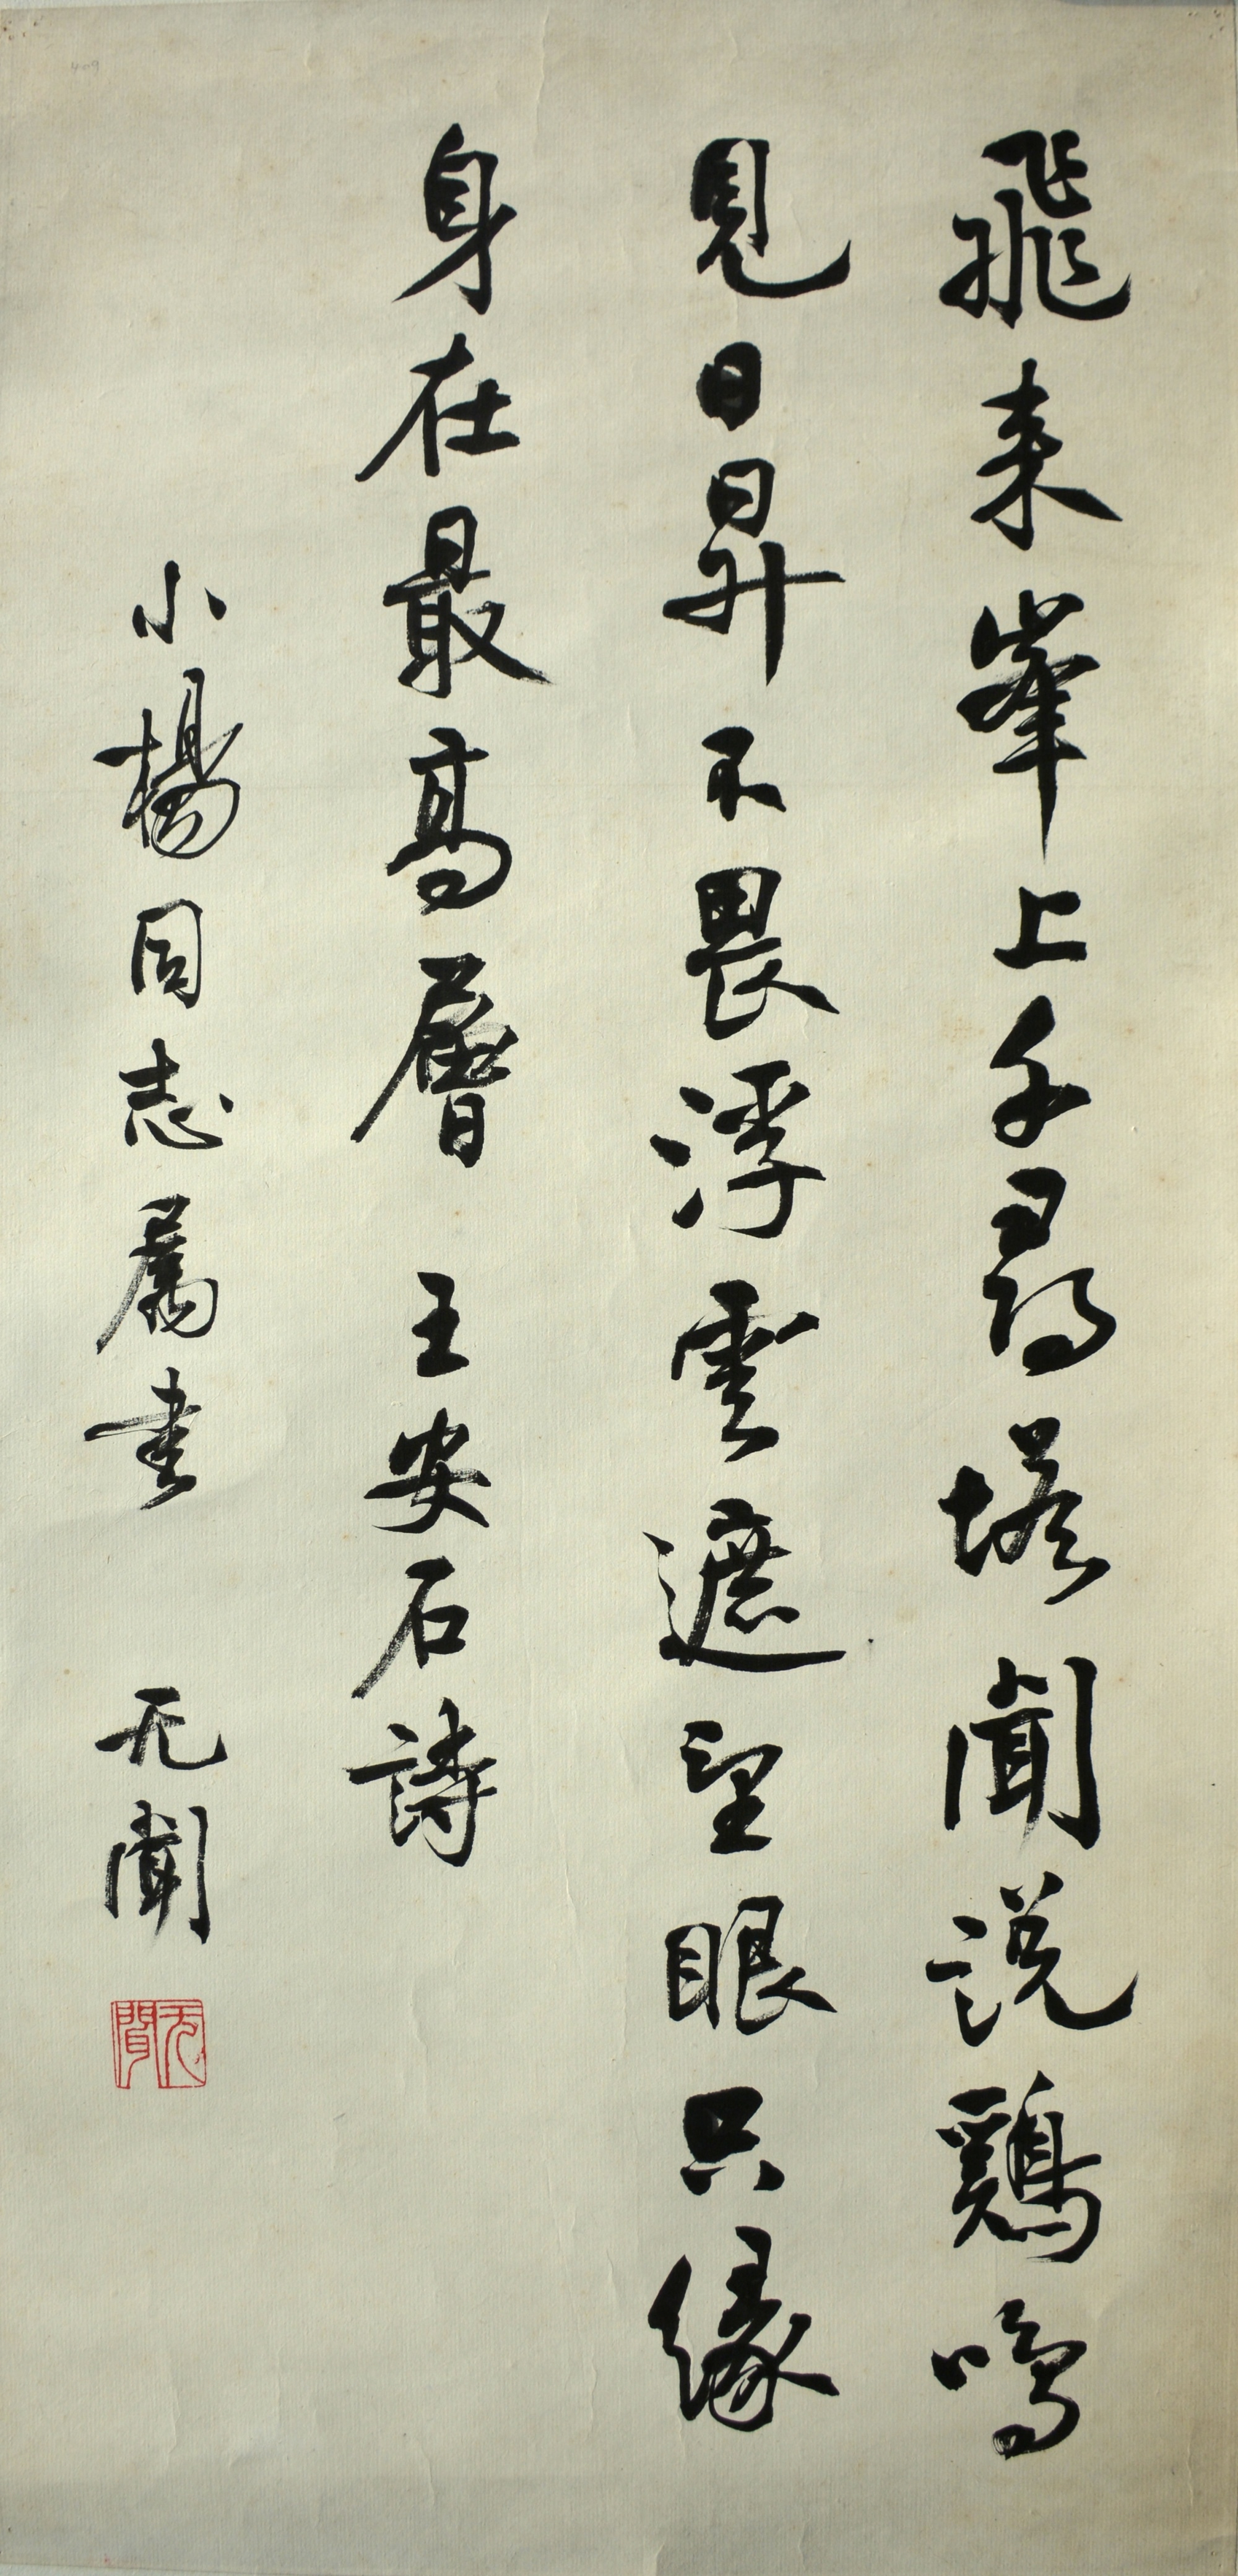 飛来峯上千尋塔聞説鷄鳴
見日昇不畏浮雲遮望眼只緣
身在最高層 王安石詩
小楊同志属書 无聞
无聞
409